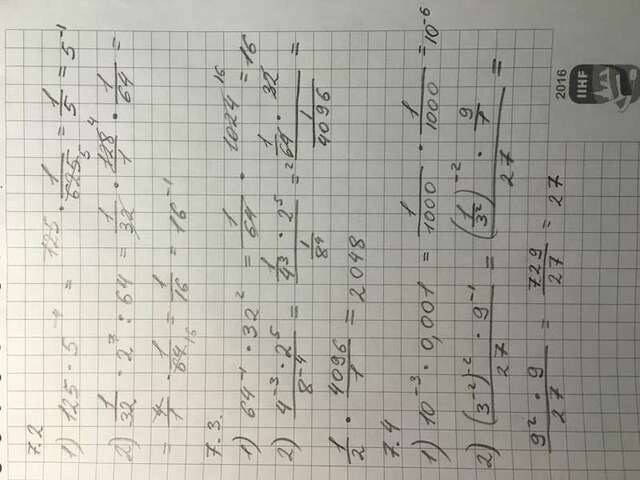 7.2
1) 125 · 5⁻⁴ = 125 · 1/625 5 = 1/5 = 5⁻¹
2) 1/32 · 2⁷ : 64 = 1/32 · 128 4/1 · 1/64 =
= 4/1 · 1/64 16 = 1/16 = 16⁻¹
7.3.
1) 64⁻¹ · 32² = 1/64 · 1024 16 = 16
2) (4⁻³ · 2⁵)/8⁻⁴ = (1/4³ · 2⁵)/(1/8⁴) = (1/2 64 · 32)/(1/4096) =
1/2 · 4096/1 = 2048
7.4
1) 10⁻³ · 0,001 = 1/1000 · 1/1000 = 10⁻⁶
2) ((3⁻²)⁻² · 9⁻¹)/27 = ((1/3²)⁻² · 9/7)/27 =
(9² · 9)/27 = 729/27 = 27
2016
IIHF